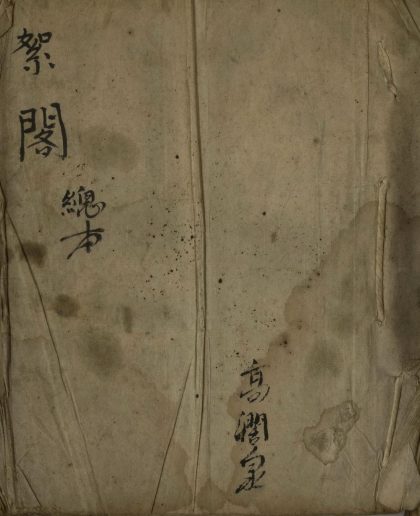 絮閣
總本
高潤泉